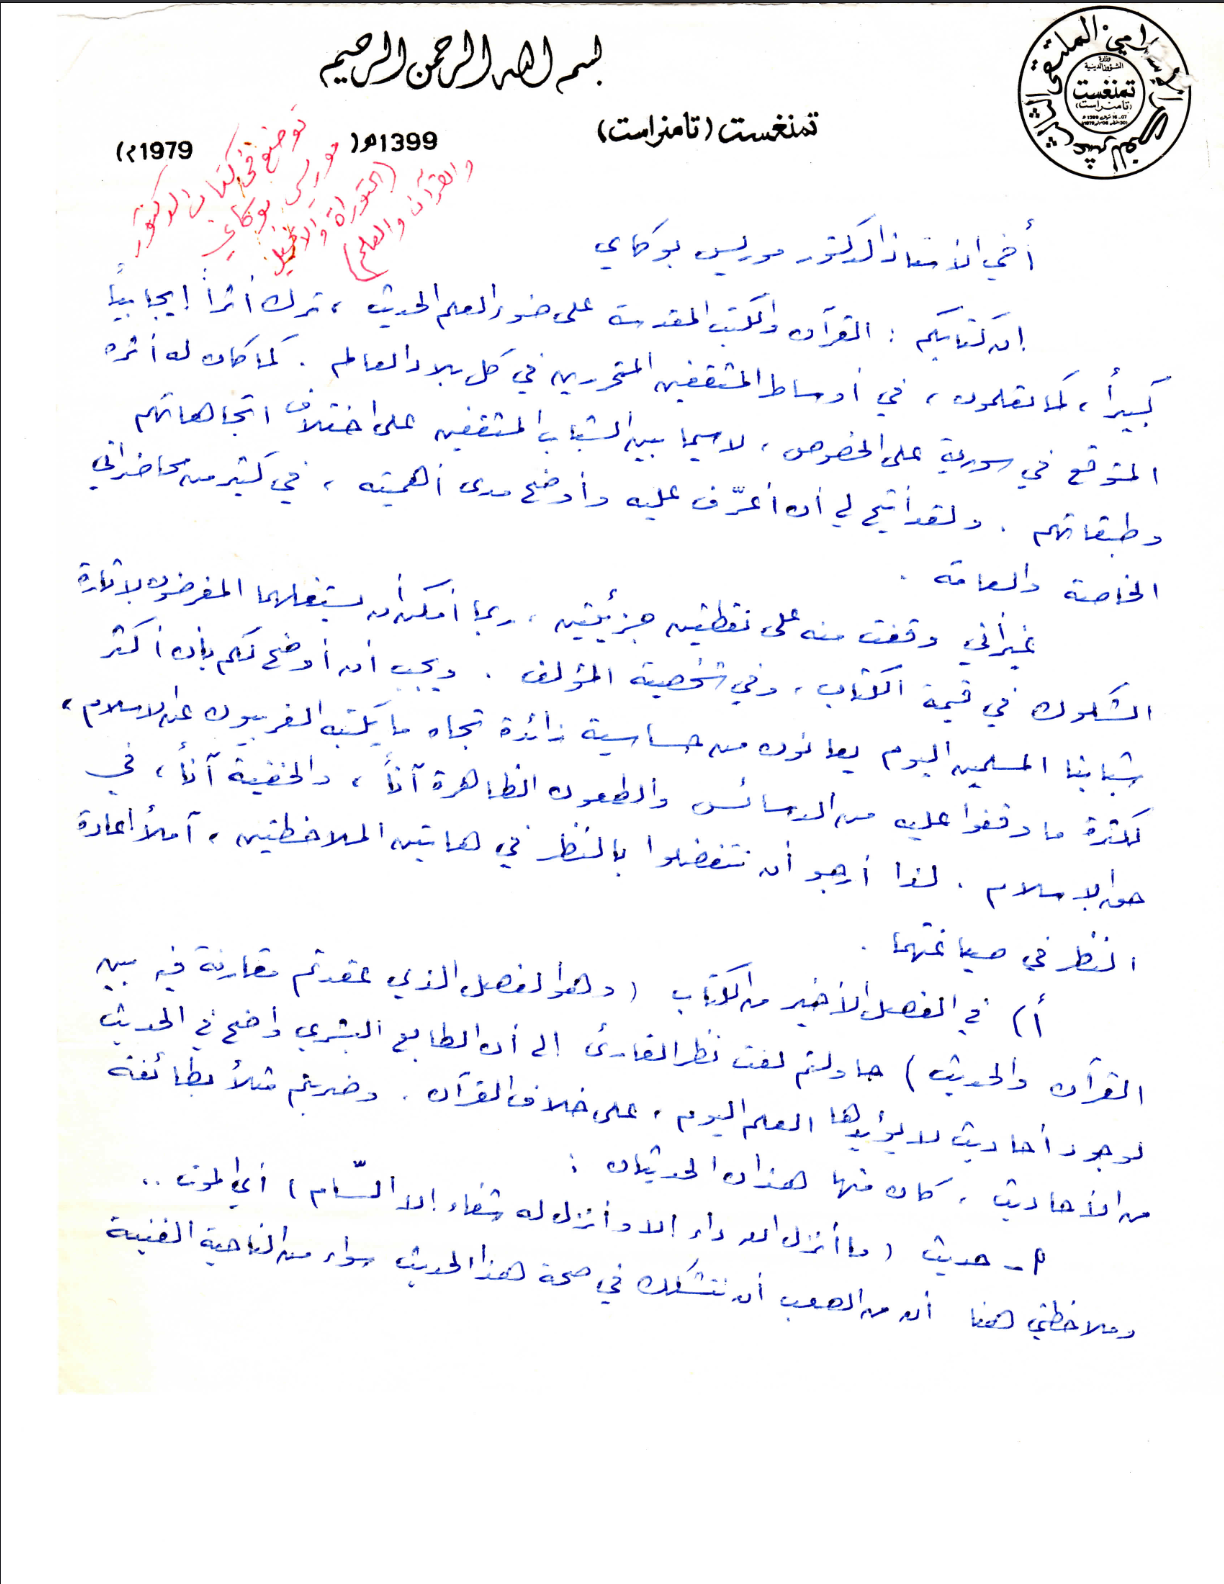 بسم الله الرحمن الرحيم
الملتقى الثالث عشر للفكر الإسلامي
وزارة
الشؤون الدينية
تمنغست
(تامنراست)
تمنغست (تامنراست)
1399هـ (1979م)
توضع في كتاب الدكتور
موريس بوكاي
(التوراة والانجيل
والقرآن والعلم)
أخي الأستاذ الدكتور موريس بوكاي
إن كتابكم: القرآن والكتب المقدسة على ضوء العلم الحديث، ترك أثراً إيجابياً
كبيراً، كما تعلمون، في أوساط المثقفين المتحررين في كل بلاد العالم. كما كان له أثره
المتوقع في سورية على الخصوص، لاسيما بين الشباب المثقفين على اختلاف اتجاهاتهم
وطبقاتهم. ولقد أتيح لي أن أعرّف عليه وأوضح مدى أهميته، في كثير من محاضراتي
الخاصة والعامة.
غير أني وقفت منه على نقطتين جزئيتين، ربما أمكن أن يستغلهما المغرضون لإثارة
الشكوك في قيمة الكتاب، وفي شخصية المؤلف. ويجب أن أوضح لكم بأن أكثر
شبابنا المسلمين اليوم يعانون من حساسية زائدة تجاه ما يكتبه الغربيون عن الاسلام،
لكثرة ما وقفوا عليه من الدسائس والطعون الظاهرة آناً، والخفية آناً، في
حق الإسلام. لذا أرجو أن تتفضلوا بالنظر في هاتين الملاحظتين، آملاً اعادة
النظر في صياغتهما.
أ) في الفصل الأخير من الكتاب (وهو الفصل الذي عقدتم مقارنة فيه بين
القرآن والحديث) حاولتم لفت نظر القارئ الى أن الطابع البشري واضح في الحديث
لوجود أحاديث لا يؤيدها العلم اليوم، على خلاف القرآن. وضربتم مثلاً بطائفة
من الأحاديث، كان منها هذان الحديثان:
١ـ حديث (ما أنزل الله داء إلا وأنزل له شفاء إلا السّام) أي الموت ..
وملاحظتي هنا أن من الصعب أن نتشكك في صحة هذا الحديث سواء من الناحية الفنية